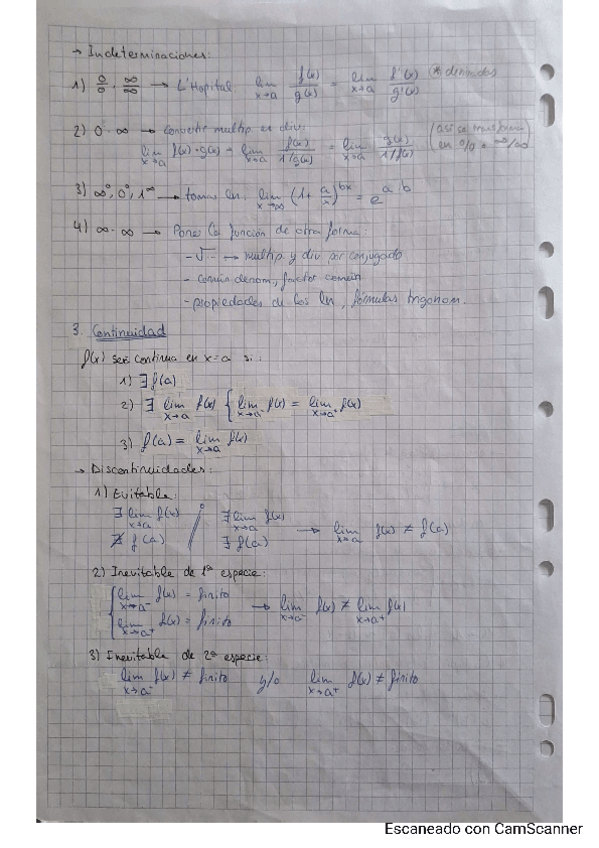 → Indeterminaciones:
1) 0/0 · ∞/∞ → L'Hopital lim x→a f(x)/g(x) = lim x→a f'(x)/g'(x) (* derivadas
2) 0·∞ → Convertir multip. en div: (así se transforma
lim x→a f(x)·g(x) = lim x→a f(x)/1/g(x) = lim x→a g(x)/1/f(x) en 0/0 ∞/∞)
3) ∞⁰, 0⁰, 1^∞ → tomas ln. lim x→∞ (1+ a/x)^bx = e^a·b
4) ∞-∞ → Pones la función de otra forma:
-√ → multip. y div por conjugado
- común denom, factor común
- propiedades de los ln, fórmulas trigonom.
3. Continuidad
f(x) será continua en x=a si:
1) ∃ f(a)
2) ∃ lim x→a f(x) { lim x→a⁻ f(x) = lim x→a⁺ f(x)
3) f(a) = lim x→a f(x)
→ Discontinuidades:
1) Evitable:
∃ lim x→a f(x) / ∃ lim x→a f(x) → lim x→a f(x) ≠ f(a)
∄ f(a) ∃ f(a)
2) Inevitable de 1ª especie:
{ lim x→a⁻ f(x) = finito
lim x→a⁺ f(x) = finito → lim x→a⁻ f(x) ≠ lim x→a⁺ f(x)
3) Inevitable de 2ª especie:
lim x→a⁻ f(x) ≠ finito y/o lim x→a⁺ f(x) ≠ finito
Escaneado con CamScanner